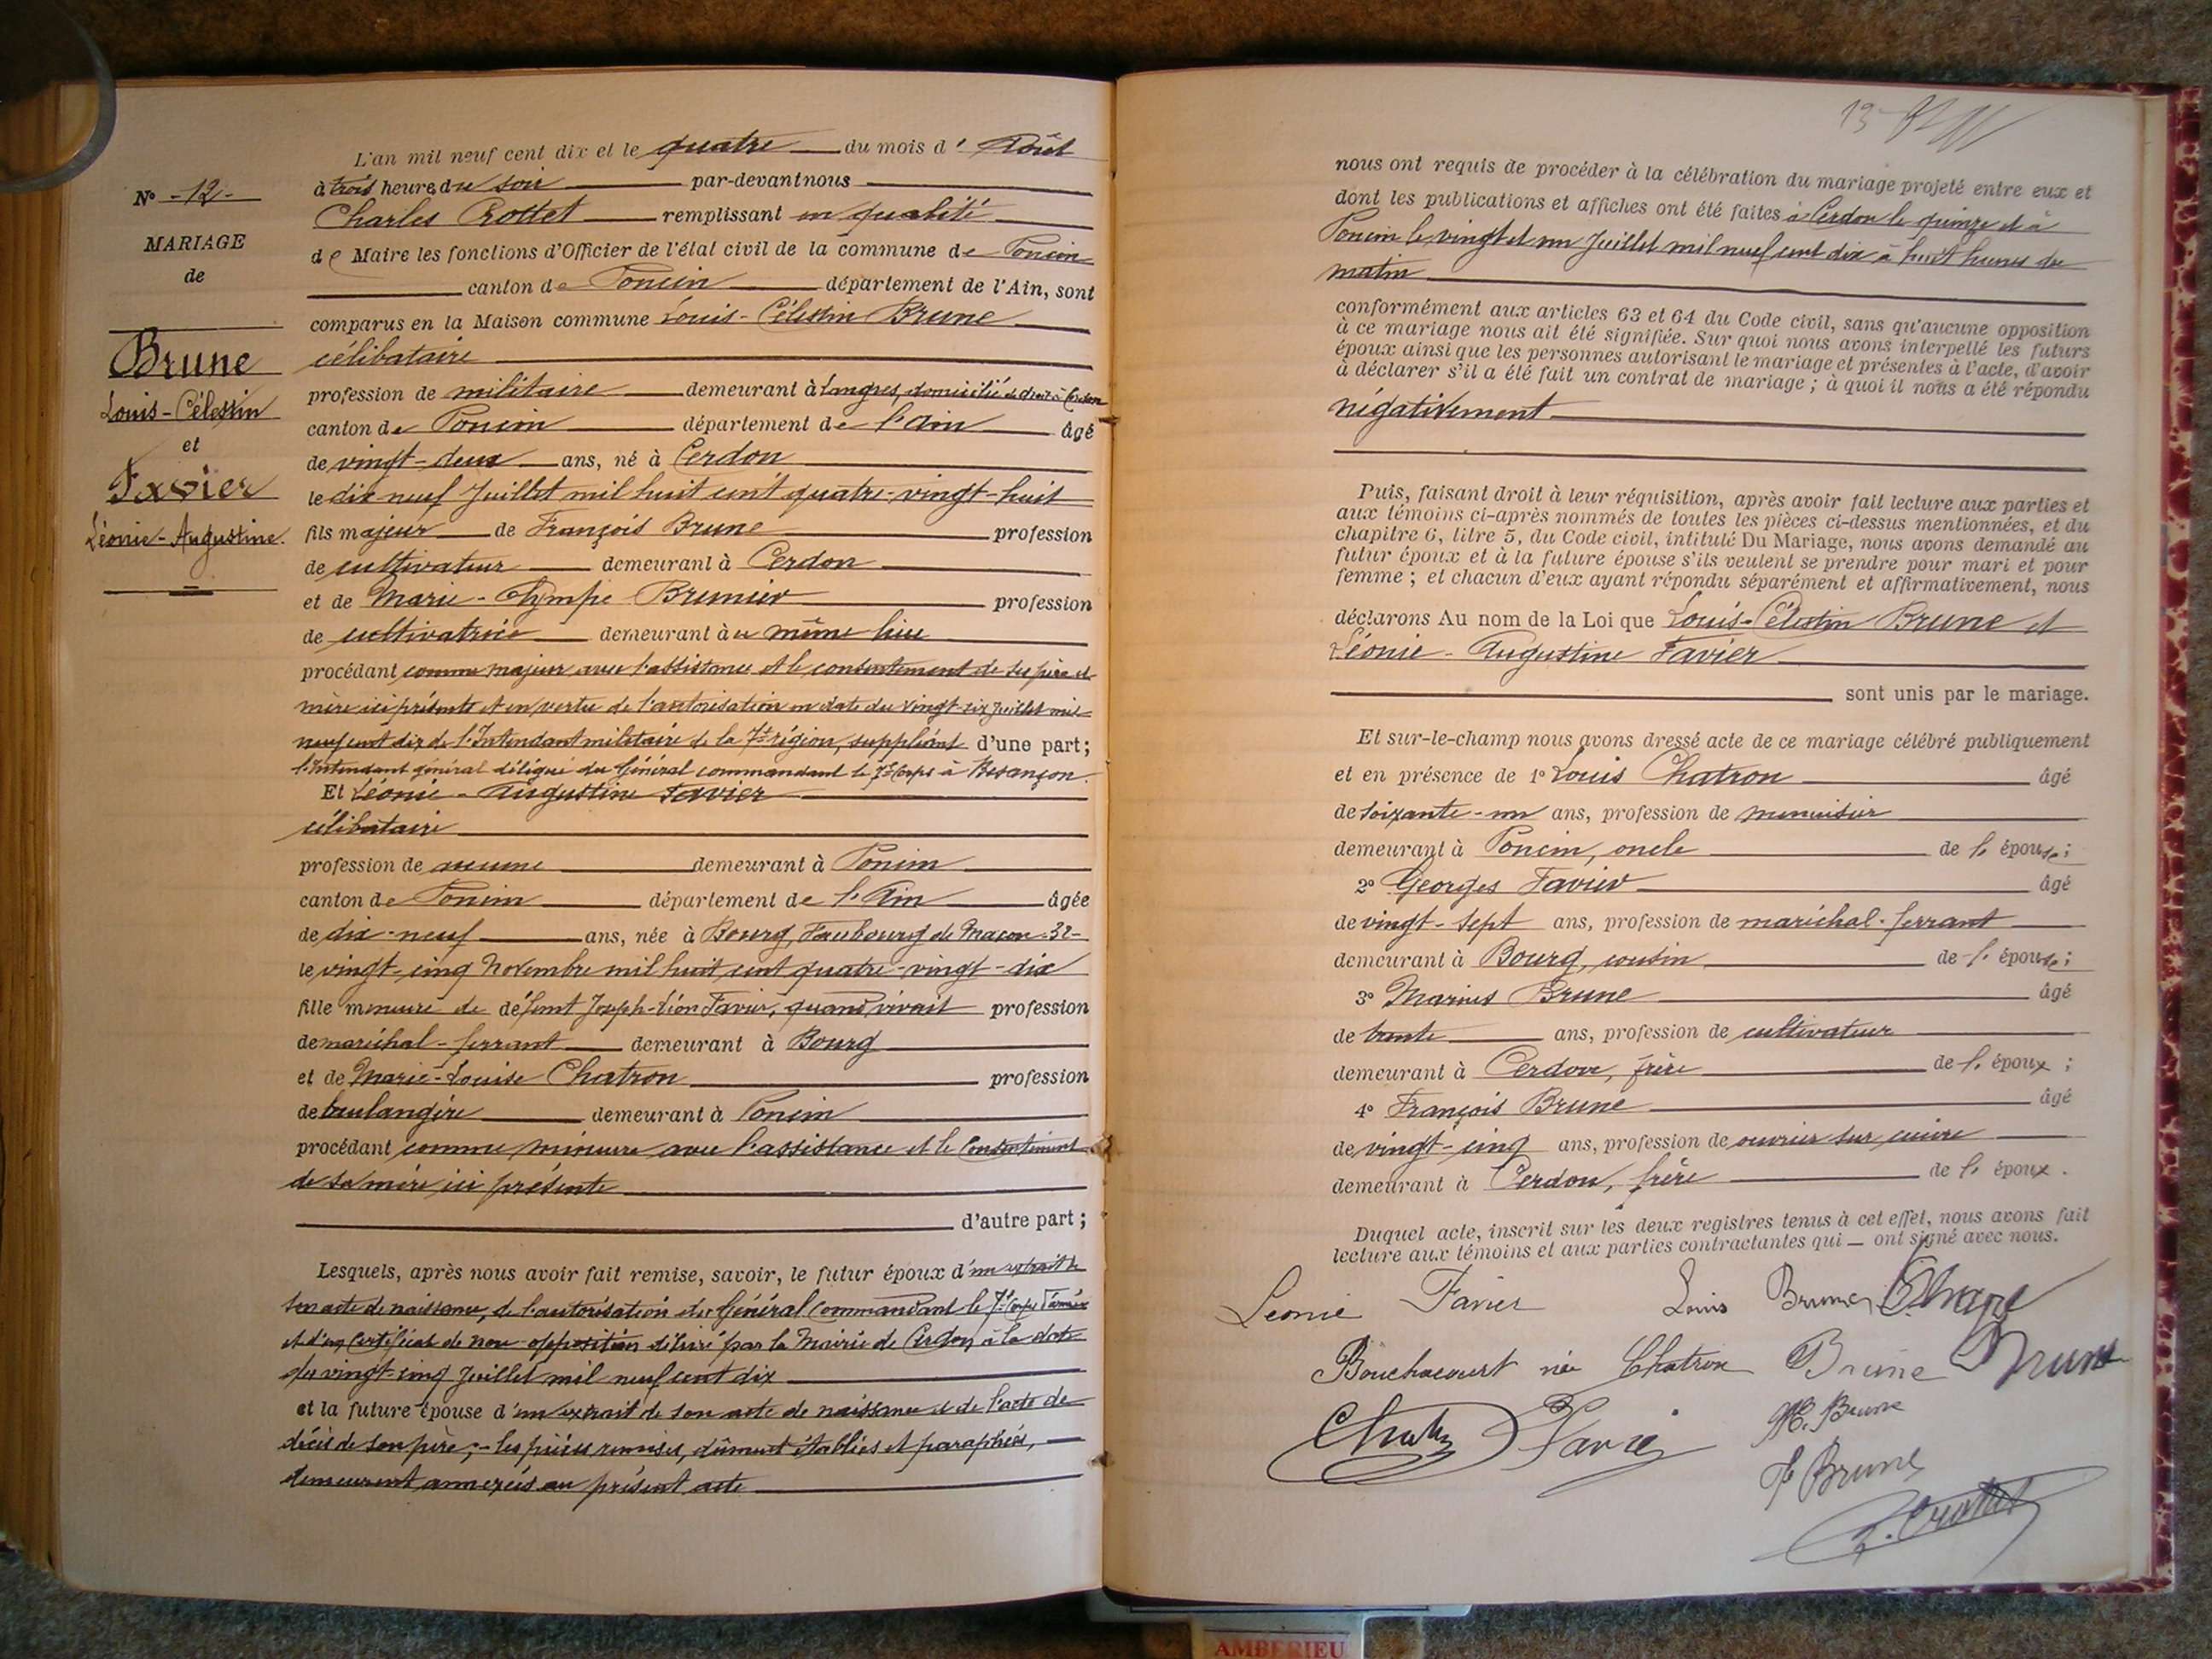 N° - 12 -
MARIAGE
de
Brune
Louis-Célestin
et
Favier
Léonie-Augustine.
L'an mil neuf cent dix et le quatre du mois d' Août
à trois heures du soir par-devant nous
Charles Crottet remplissant en qualité
de Maire les fonctions d'Officier de l'état civil de la commune de Poncin
canton de Poncin département de l'Ain, sont
comparus en la Maison commune Louis-Célestin Brune
célibataire
profession de militaire demeurant à Langres, domicilié de droit à Cerdon
canton de Poncin département de l'Ain âgé
de vingt-deux ans, né à Cerdon
le dix-neuf Juillet mil huit cent quatre-vingt-huit
fils majeur de François Brune profession
de cultivateur demeurant à Cerdon
et de Marie-Olympe Brunier profession
de cultivatrice demeurant au même lieu
procédant comme majeur avec l'assistance et le consentement de ses père et
mère ici présents et en vertu de l'autorisation en date du vingt-six Juillet mil
neuf cent dix de l'Intendant militaire de la 7e région, suppléant d'une part;
l'Intendant général délégué du Général commandant le 7e Corps à Besançon.
Et Léonie-Augustine Favier
célibataire
profession de aucune demeurant à Poncin
canton de Poncin département de l'Ain âgée
de dix-neuf ans, née à Bourg, Faubourg de Macon-32-
le vingt-cinq Novembre mil huit cent quatre-vingt-dix
fille mineure de défunt Joseph-Léon Favier, quand vivait profession
de maréchal-ferrant demeurant à Bourg
et de Marie-Louise Chatron profession
de boulangère demeurant à Poncin
procédant comme mineure avec l'assistance et le Consentement
de sa mère ici présente
d'autre part;
Lesquels, après nous avoir fait remise, savoir, le futur époux d'un extrait de
son acte de naissance, de l'autorisation du Général Commandant le 7e Corps d'armée
et d'un Certificat de non-opposition délivré par la Mairie de Cerdon, à la date
du vingt-cinq Juillet mil neuf cent dix
et la future épouse d'un extrait de son acte de naissance et de l'acte de
décès de son père; - les pièces remises, dûment établies et paraphées,
demeurent annexées au présent acte
13
nous ont requis de procéder à la célébration du mariage projeté entre eux et
dont les publications et affiches ont été faites à Cerdon le quinze et à
Poncin le vingt et un Juillet mil neuf cent dix à huit heures du
matin
conformément aux articles 63 et 64 du Code civil, sans qu'aucune opposition
à ce mariage nous ait été signifiée. Sur quoi nous avons interpellé les futurs
époux ainsi que les personnes autorisant le mariage et présentes à l'acte, d'avoir
à déclarer s'il a été fait un contrat de mariage; à quoi il nous a été répondu
négativement
Puis, faisant droit à leur réquisition, après avoir fait lecture aux parties et
aux témoins ci-après nommés de toutes les pièces ci-dessus mentionnées, et du
chapitre 6, litre 5, du Code civil, intitulé Du Mariage, nous avons demandé au
futur époux et à la future épouse s'ils veulent se prendre pour mari et pour
femme; et chacun d'eux ayant répondu séparément et affirmativement, nous
déclarons Au nom de la Loi que Louis-Célestin Brune et
Léonie-Augustine Favier
sont unis par le mariage.
Et sur-le-champ nous avons dressé acte de ce mariage célébré publiquement
et en présence de 1° Louis Chatron âgé
de soixante-un ans, profession de menuisier
demeurant à Poncin, oncle de l' épouse;
2° Georges Favier âgé
de vingt-sept ans, profession de maréchal-ferrant
demeurant à Bourg, cousin de l' épouse;
3° Marius Brune âgé
de trente ans, profession de cultivateur
demeurant à Cerdon, frère de l' époux;
4° François Brune âgé
de vingt-cinq ans, profession de ouvrier sur cuivre
demeurant à Cerdon, frère de l' époux.
Duquel acte, inscrit sur les deux registres tenus à cet effet, nous avons fait
lecture aux témoins et aux parties contractantes qui — ont signé avec nous.
Léonie Favier Louis Brune
Bouchacourt née Chatron Brune Brune
Favier M. Brune
F Brune
C. Crottet
AMBERIEU